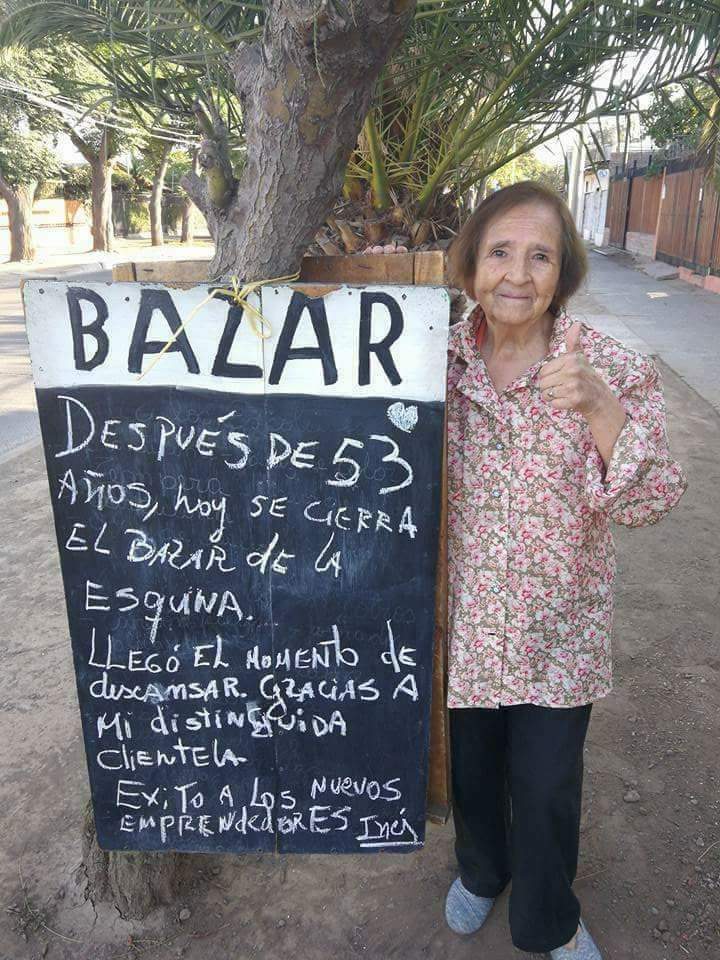 BAZAR
DESPUÉS DE 53
AÑOS, hoy SE CIERRA
EL BAZAR de LA
ESQUINA.
LLEGÓ EL MOMENTO de
descANSAR. GRACIAS A
MI distINGUIDA
clientELA
EXiTO A LOS NUEVOS
EMPRENdedORES Inés